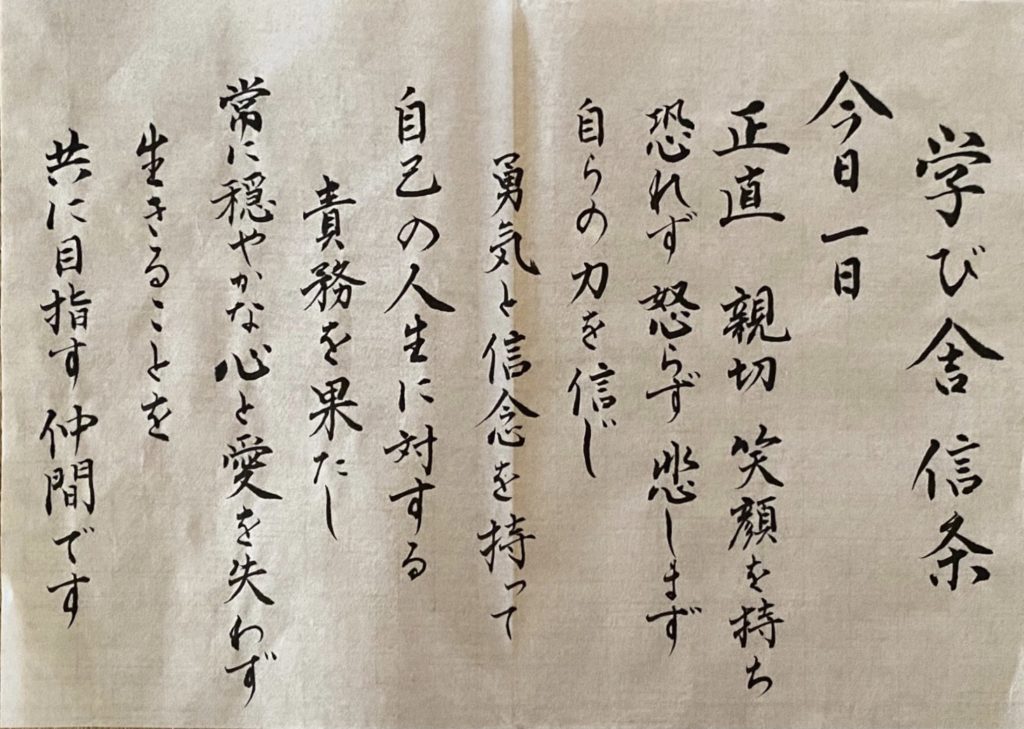 学び舎 信条
今日一日
正直 親切 笑顔を持ち
恐れず 怒らず 悲しまず
自らの力を信じ
勇気と信念を持って
自己の人生に対する
責務を果たし
常に穏やかな心と愛を失わず
生きることを
共に目指す 仲間です